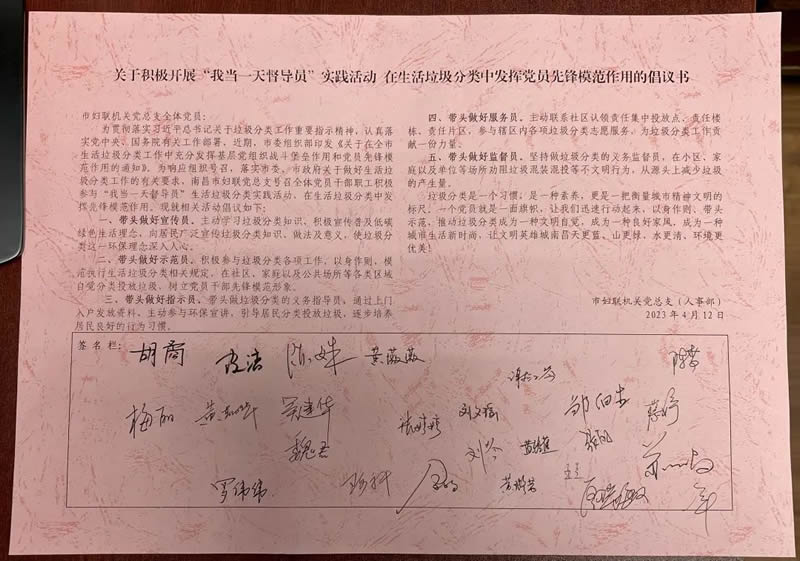 关于积极开展“我当一天督导员”实践活动 在生活垃圾分类中发挥党员先锋模范作用的倡议书
市妇联机关党总支全体党员：
为贯彻落实习近平总书记关于垃圾分类工作重要指示精神，认真落
实党中央、国务院有关工作部署，近期，市委组织部印发《关于在全市
生活垃圾分类工作中充分发挥基层党组织战斗堡垒作用和党员先锋模
范作用的通知》。为响应组织号召，落实市委、市政府关于做好生活垃
圾分类工作的有关要求，南昌市妇联党总支号召全体党员干部职工积极
参与“我当一天督导员”生活垃圾分类实践活动，在生活垃圾分类中发
挥先锋模范作用。现就相关活动倡议如下：
一、带头做好宣传员。主动学习垃圾分类知识、积极宣传普及低碳
绿色生活理念，向居民广泛宣传垃圾分类知识、做法及意义，使垃圾分
类这一环保理念深入人心。
二、带头做好示范员。积极参与垃圾分类各项工作，以身作则，模
范执行生活垃圾分类相关规定，在社区、家庭以及公共场所等各类区域
自觉分类投放垃圾，树立党员干部先锋模范形象。
三、带头做好指示员。带头做垃圾分类的义务指导员，通过上门
入户发放资料、主动参与环保宣讲，引导居民分类投放垃圾，逐步培养
居民良好的行为习惯。
四、带头做好服务员。主动联系社区认领责任集中投放点、责任楼
栋、责任片区，参与辖区内各项垃圾分类志愿服务，为垃圾分类工作贡
献一份力量。
五、带头做好监督员。坚持做垃圾分类的义务监督员，在小区、家
庭以及单位等场所劝阻垃圾混装混投等不文明行为，从源头上减少垃圾
的产生量。
垃圾分类是一个习惯，是一种素养，更是一把衡量城市精神文明的
标尺。一个党员就是一面旗帜，让我们迅速行动起来，以身作则、带头
示范，推动垃圾分类成为一种文明自觉，成为一种良好家风，成为一种
城市生活新时尚，让文明英雄城南昌天更蓝、山更绿、水更清、环境更
优美！
市妇联机关党总支（人事部）
2023年4月12日
签名栏：
胡商 陈姝 黄薇薇
梅丽 吴建华 刘文瑶
魏君 刘芩
罗伟伟